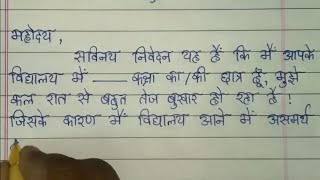 महोदय,
सविनय निवेदन यह है कि मैं आपके
विद्यालय में ——— कक्षा का/की छात्र हूँ, मुझे
कल रात से बहुत तेज बुखार हो रहा है!
जिसके कारण मैं विद्यालय आने में असमर्थ